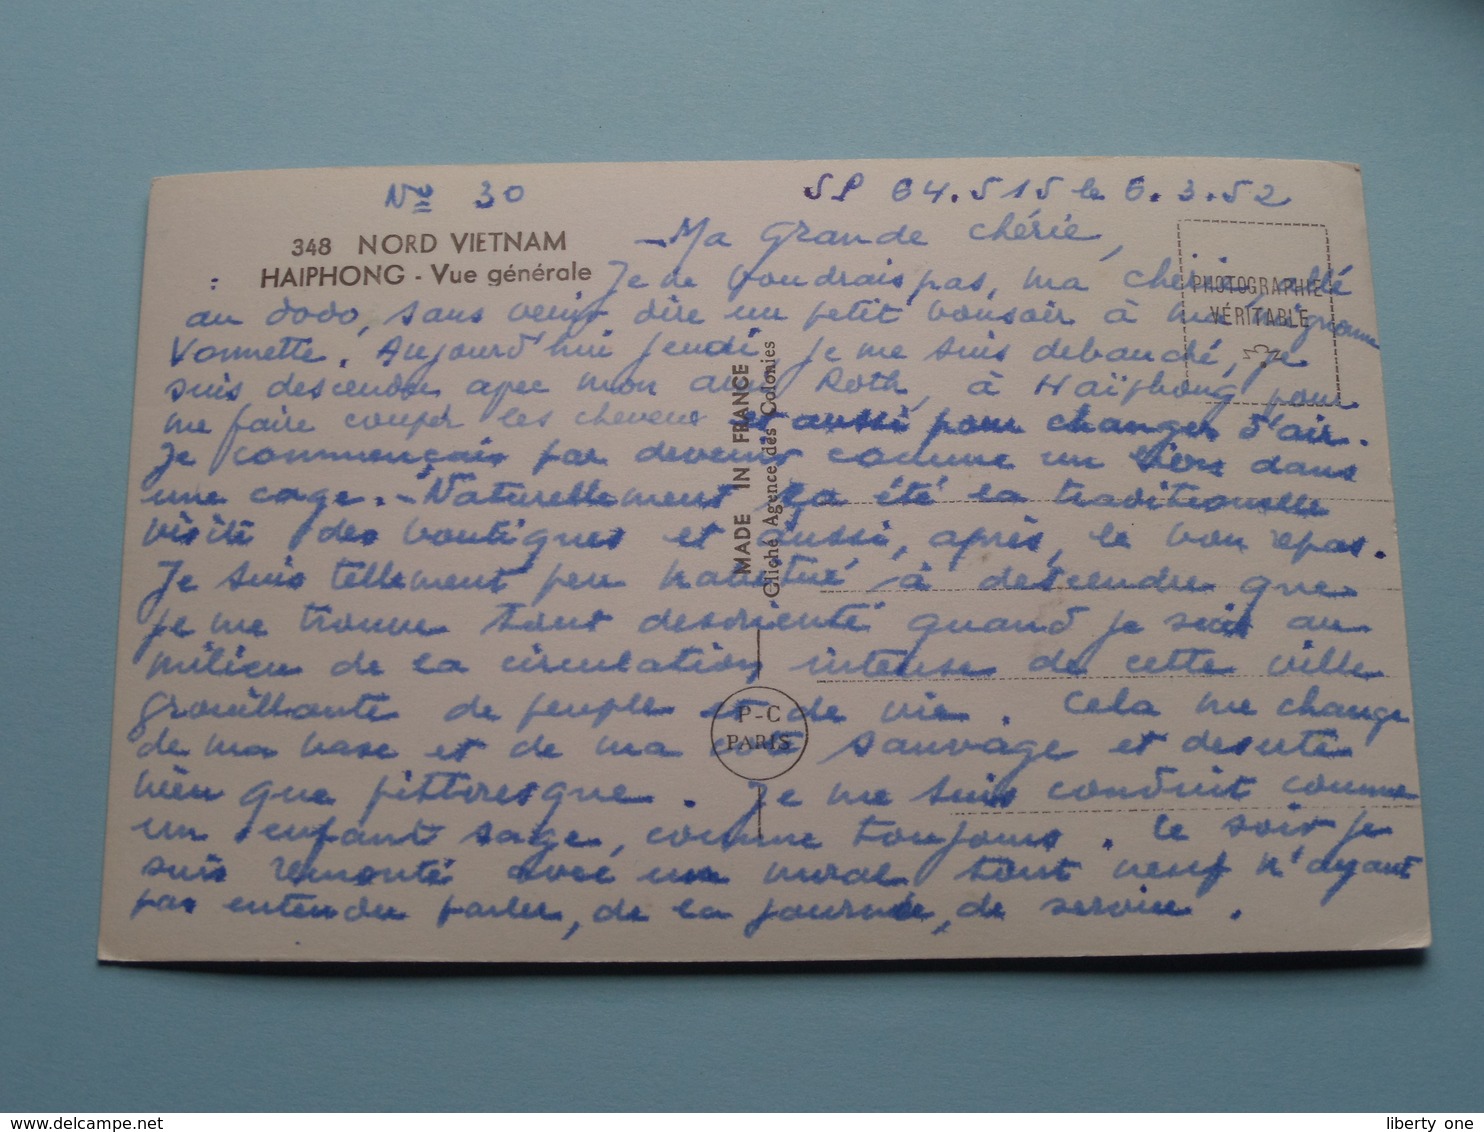 Nº 30
SP 64.515 le 6.3.52
348 NORD VIETNAM
HAIPHONG - Vue générale
- Ma grande chérie,
Je ne voudrais pas, ma chérie, allé
au dodo, sans venir dire un petit bonsoir à ma mignonne
Vonnette. Aujourd'hui jeudi, je me suis debauché, je
suis descendu avec mon ami Roth, à Haïphong pour
me faire couper les cheveux et aussi pour changer d'air.
Je commençais par devenir comme un lion dans
une cage. - Naturellement ça été la traditionnelle
visite des boutiques et aussi, après, le bon repas.
Je suis tellement peu habitué à descendre que
je me trouve tout desorienté quand je suis au
milieu de la circulation intense de cette ville
grouillante de peuple et de vie. Cela me change
de ma base et de ma côte sauvage et deserte
bien que pittoresque. Je me suis conduit comme
un enfant sage, comme toujours. Le soir je
suis remonté avec un moral tout neuf n'ayant
pas entendu parler, de la journée, de service.
PHOTOGRAPHIE
VÉRITABLE
MADE IN FRANCE
Cliché Agence des Colonies
P-C
PARIS
liberty one
delcampe.net